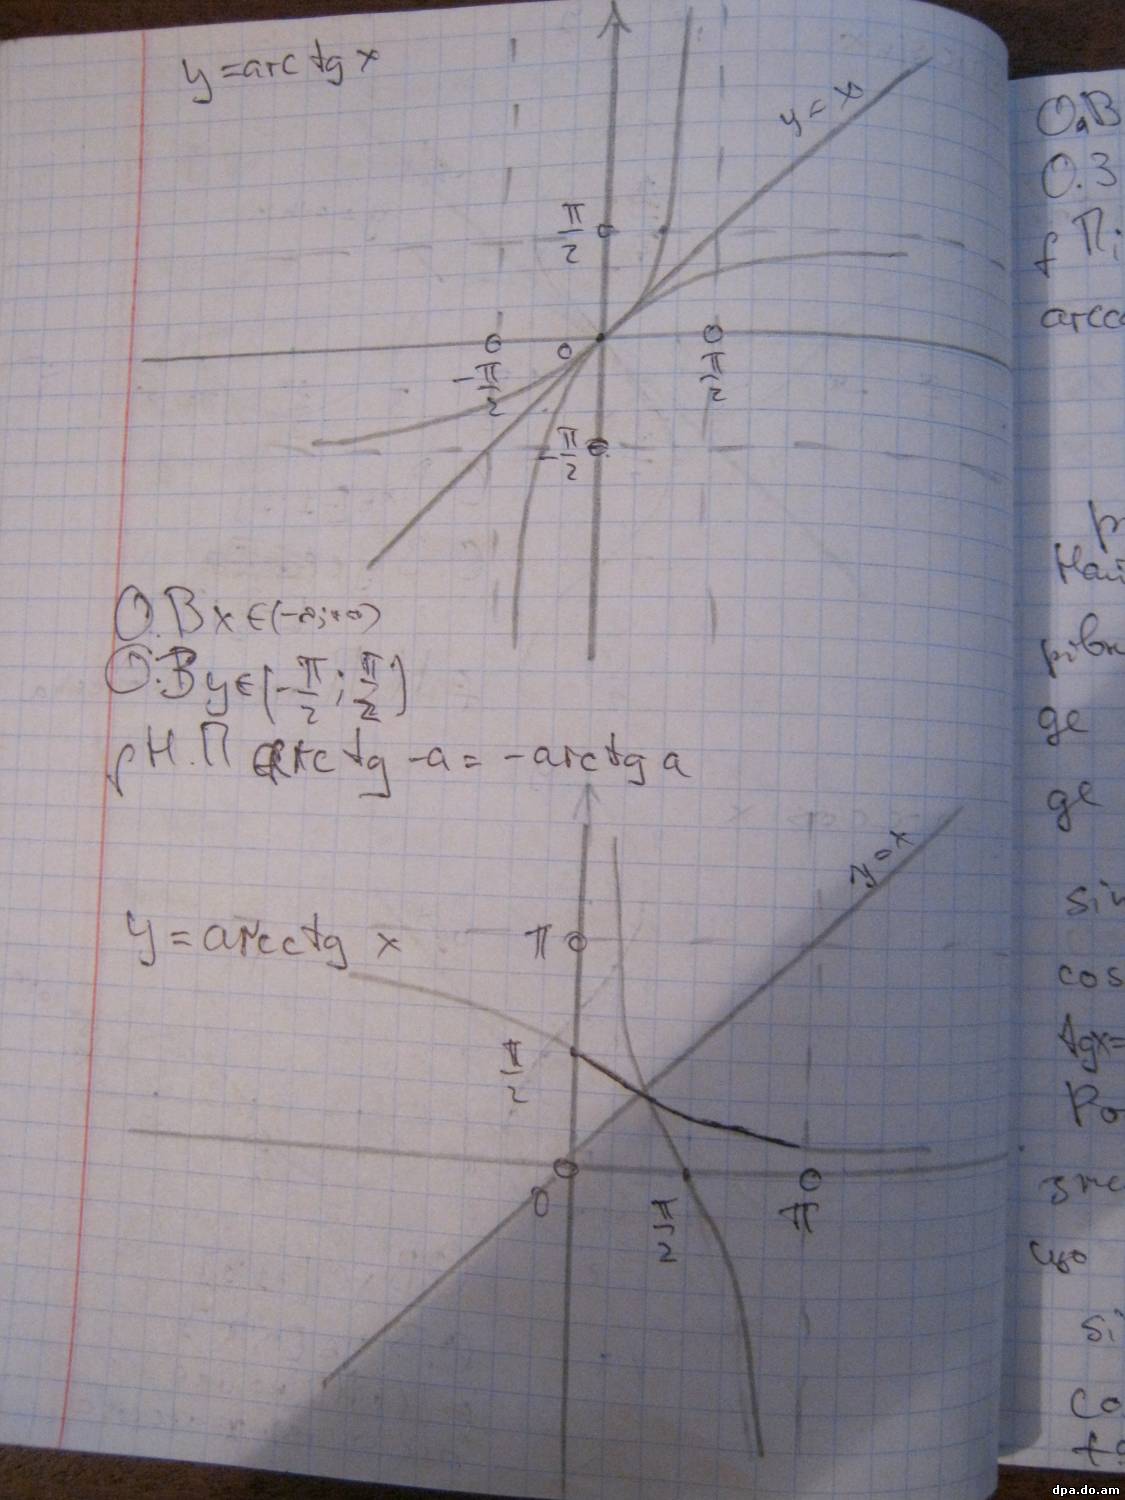 y = arctg x
y = x
π/2
-π/2
0
π/2
-π/2
О.В x ∈ (-∞; +∞)
О.З y ∈ (-π/2; π/2)
f Н.П arctg -a = -arctg a
y = x
y = arcctg x
π
π/2
0
π/2
π
О.В
О.З
f П;
arcc
рівн
де
де
sin
cos
tgx=
Ро
зна
що
si
co
dpa.do.am